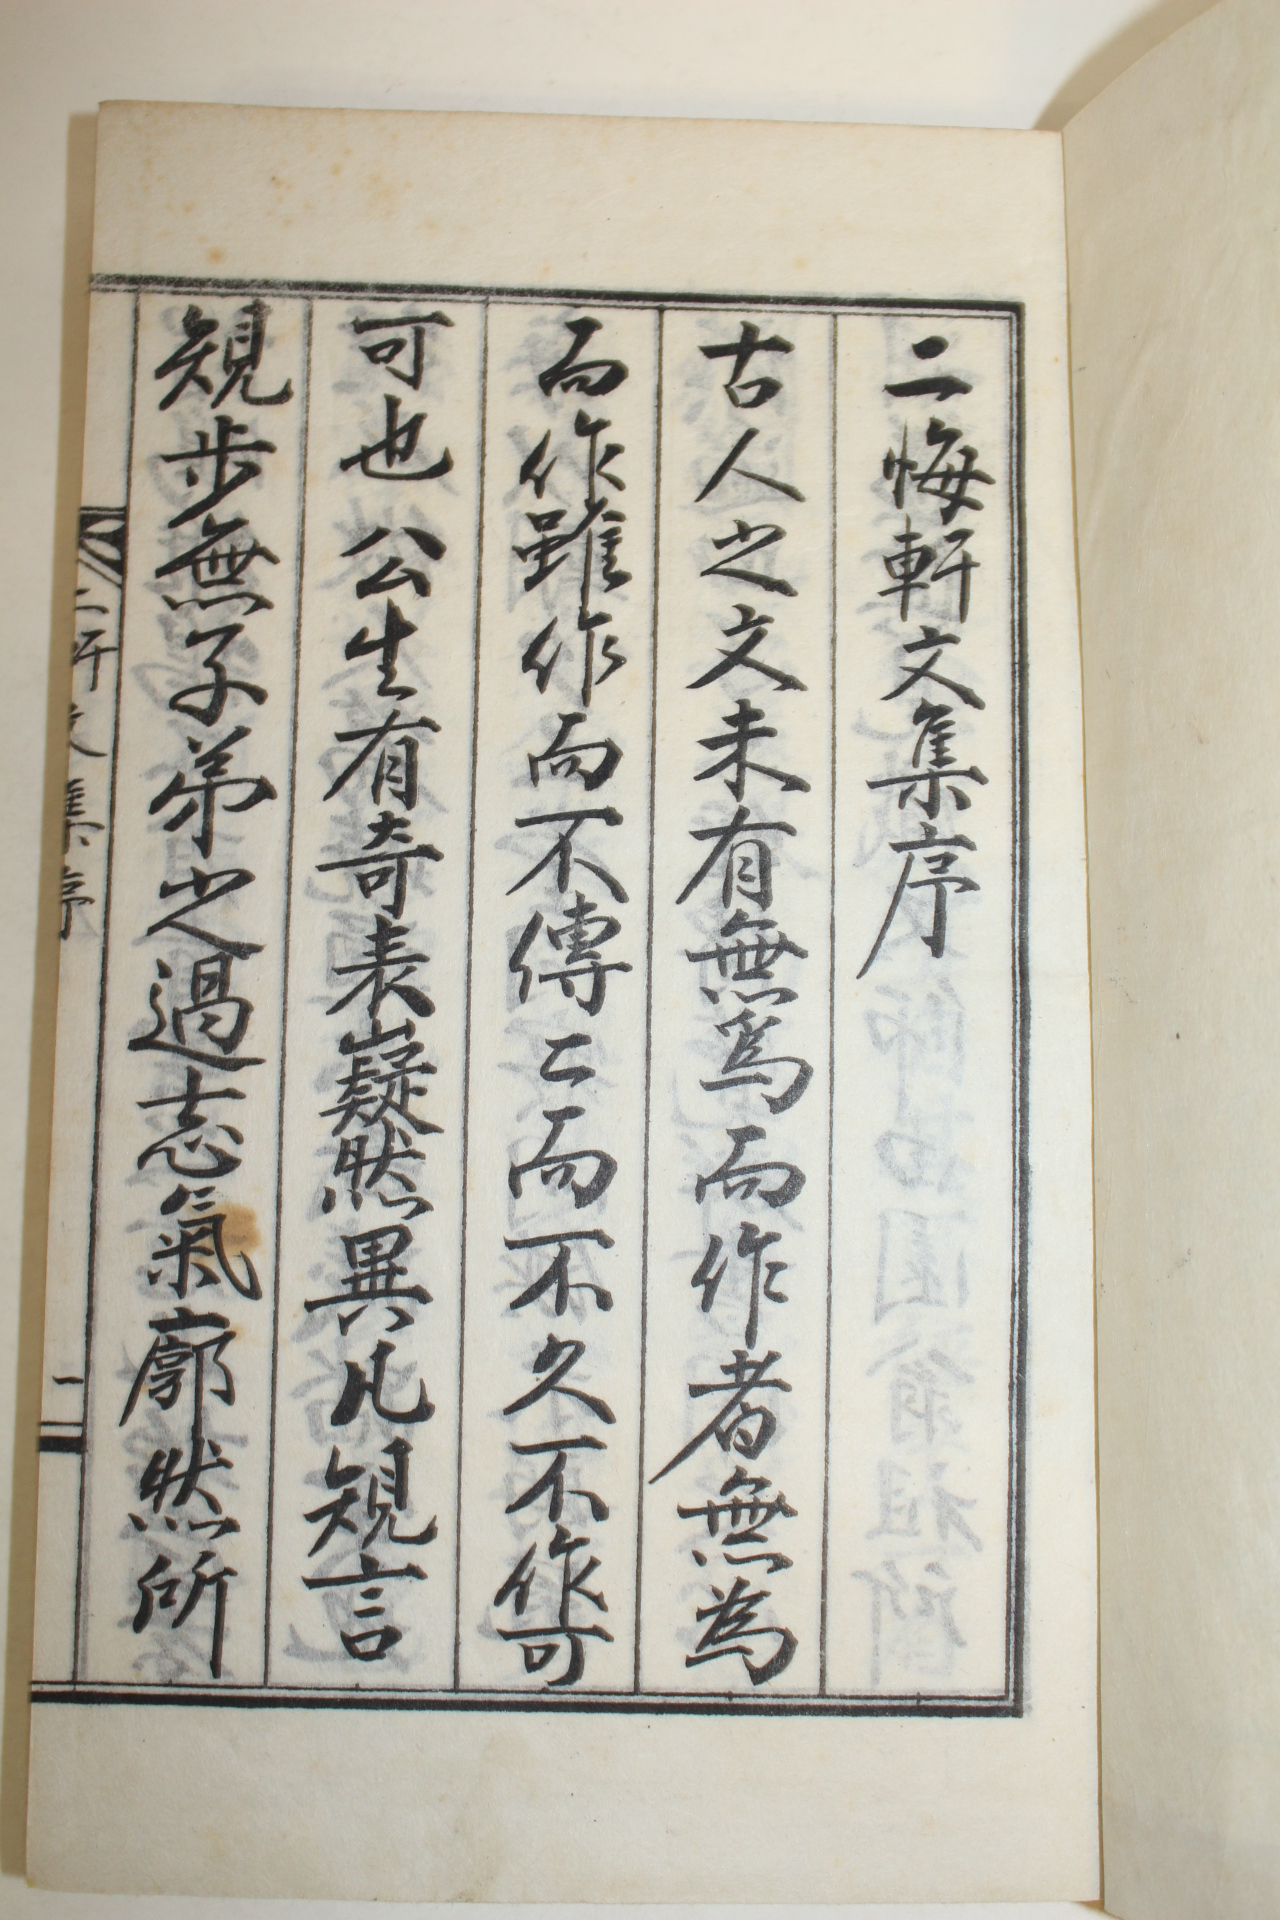 二悔軒文集序
古人之文未有無爲而作者無為
而作雖作而不傳亡而不久不作可
可也公生有奇表嶷然異凡規言
規步無子弟之過志氣廓然所
二 軒文集序
一